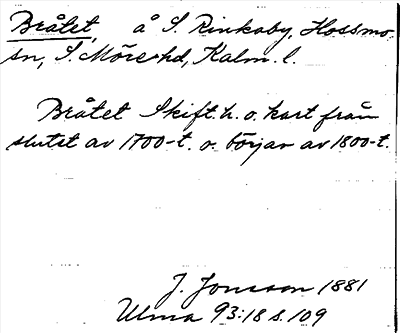 Bråtet, å S. Rinkaby, Hossmo
sn, S. Möre hd, Kalm. l.
Bråtet Skift. h. o. kart från
slutet av 1700-t. o. början av 1800-t.
J. Jonsson 1881
Ulma 93:18 s. 109